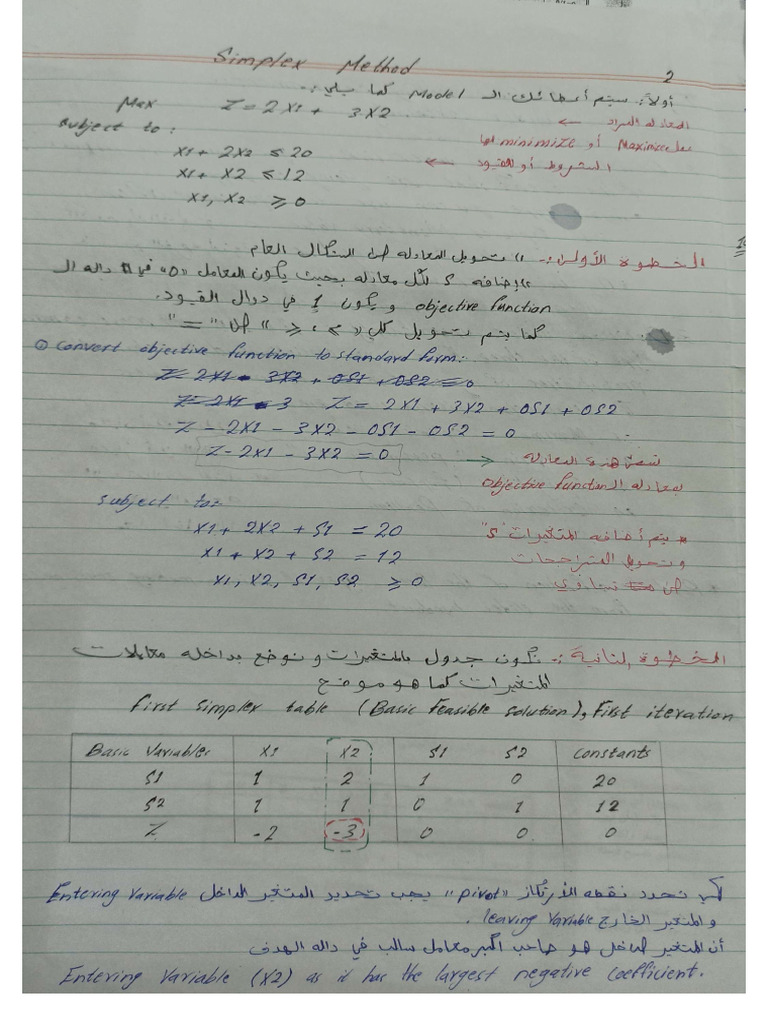 Simplex Method
2
أولاً: سيتم أعطائك الـ Model كما يلي:-
Max Z = 2X1 + 3X2
المعادله المراد ←
عمل Maximize أو minimize لها
subject to:
X1 + 2X2 ≤ 20
الشروط أو القيود ←
X1 + X2 ≤ 12
X1, X2 ≥ 0
الخطوة الأولى:- " تحويل المعادله من الشكل العام
"إضافه S لكل معادله بحيث يكون المعامل "0" في داله الـ
objective function و يكون 1 في دوال القيود.
كما يتم تحويل كلي "≥، ≤" الى "="
① convert objective function to standard form:
Z - 2X1 - 3X2 + 0S1 + 0S2 = 0
Z - 2X1 - 3 Z = 2X1 + 3X2 + 0S1 + 0S2
Z - 2X1 - 3X2 - 0S1 - 0S2 = 0
Z - 2X1 - 3X2 = 0 → تسمى هذه المعادله
بمعادله الـ objective function
subject to:-
X1 + 2X2 + S1 = 20
* يتم أضافه المتغيرات "S"
X1 + X2 + S2 = 12
وتحويل المتراجحات
X1, X2, S1, S2 ≥ 0
الى تساوي
الخطوة الثانية:- نكون جدول بالمتغيرات و نوضع بداخله معاملات
المتغيرات كما هو موضح
First simplex table (Basic Feasible solution), First iteration
Basic Variables X1 X2 S1 S2 Constants
S1 1 2 1 0 20
S2 1 1 0 1 12
Z -2 -3 0 0 0
لكي نحدد نقطه الأرتكاز "pivot" يجب تحديد المتغير الداخل Entering Variable
و المتغير الخارج leaving Variable.
أن المتغير الداخل هو صاحب اكبر معامل سالب في داله الهدف
Entering Variable (X2) as it has the largest negative coefficient.